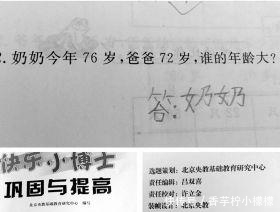 2. 奶奶今年 76 岁，爸爸 72 岁，谁的年龄大?
答:奶奶
快乐小博士
巩固与提高
北京央教基础教育研究中心 编写
选题策划：北京央教基础教育研究中心
责任编辑：吕双喜
责任校对：许立金
装帧设计：北京央教